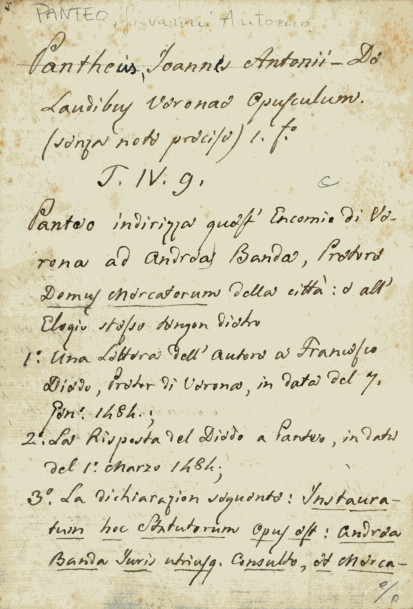 PANTEO Giovanni Antonio
Pantheus, Joannes Antonii - De
Laudibus Veronae Opusculum.
(senza note precise) 1. fo.
T. IV. 9.
Panteo indirizza quest' Encomio di Ve-
rona ad Andrea Banda, Pretore
Domus Mercatorum della città: e all'
Elogio stesso tengon dietro
1º. Una Lettera dell' Autore a Francesco
Diedo, Pretor di Verona, in data del 7.
Genº. 1484.;
2º. La Risposta del Diedo a Panteo, in data
del 1º. Marzo 1484;
3º. La dichiarazion seguente: Instaura-
tum hoc Statutorum Opus est: Andrea
Banda Juris utriusq. Consulto, et Merca-